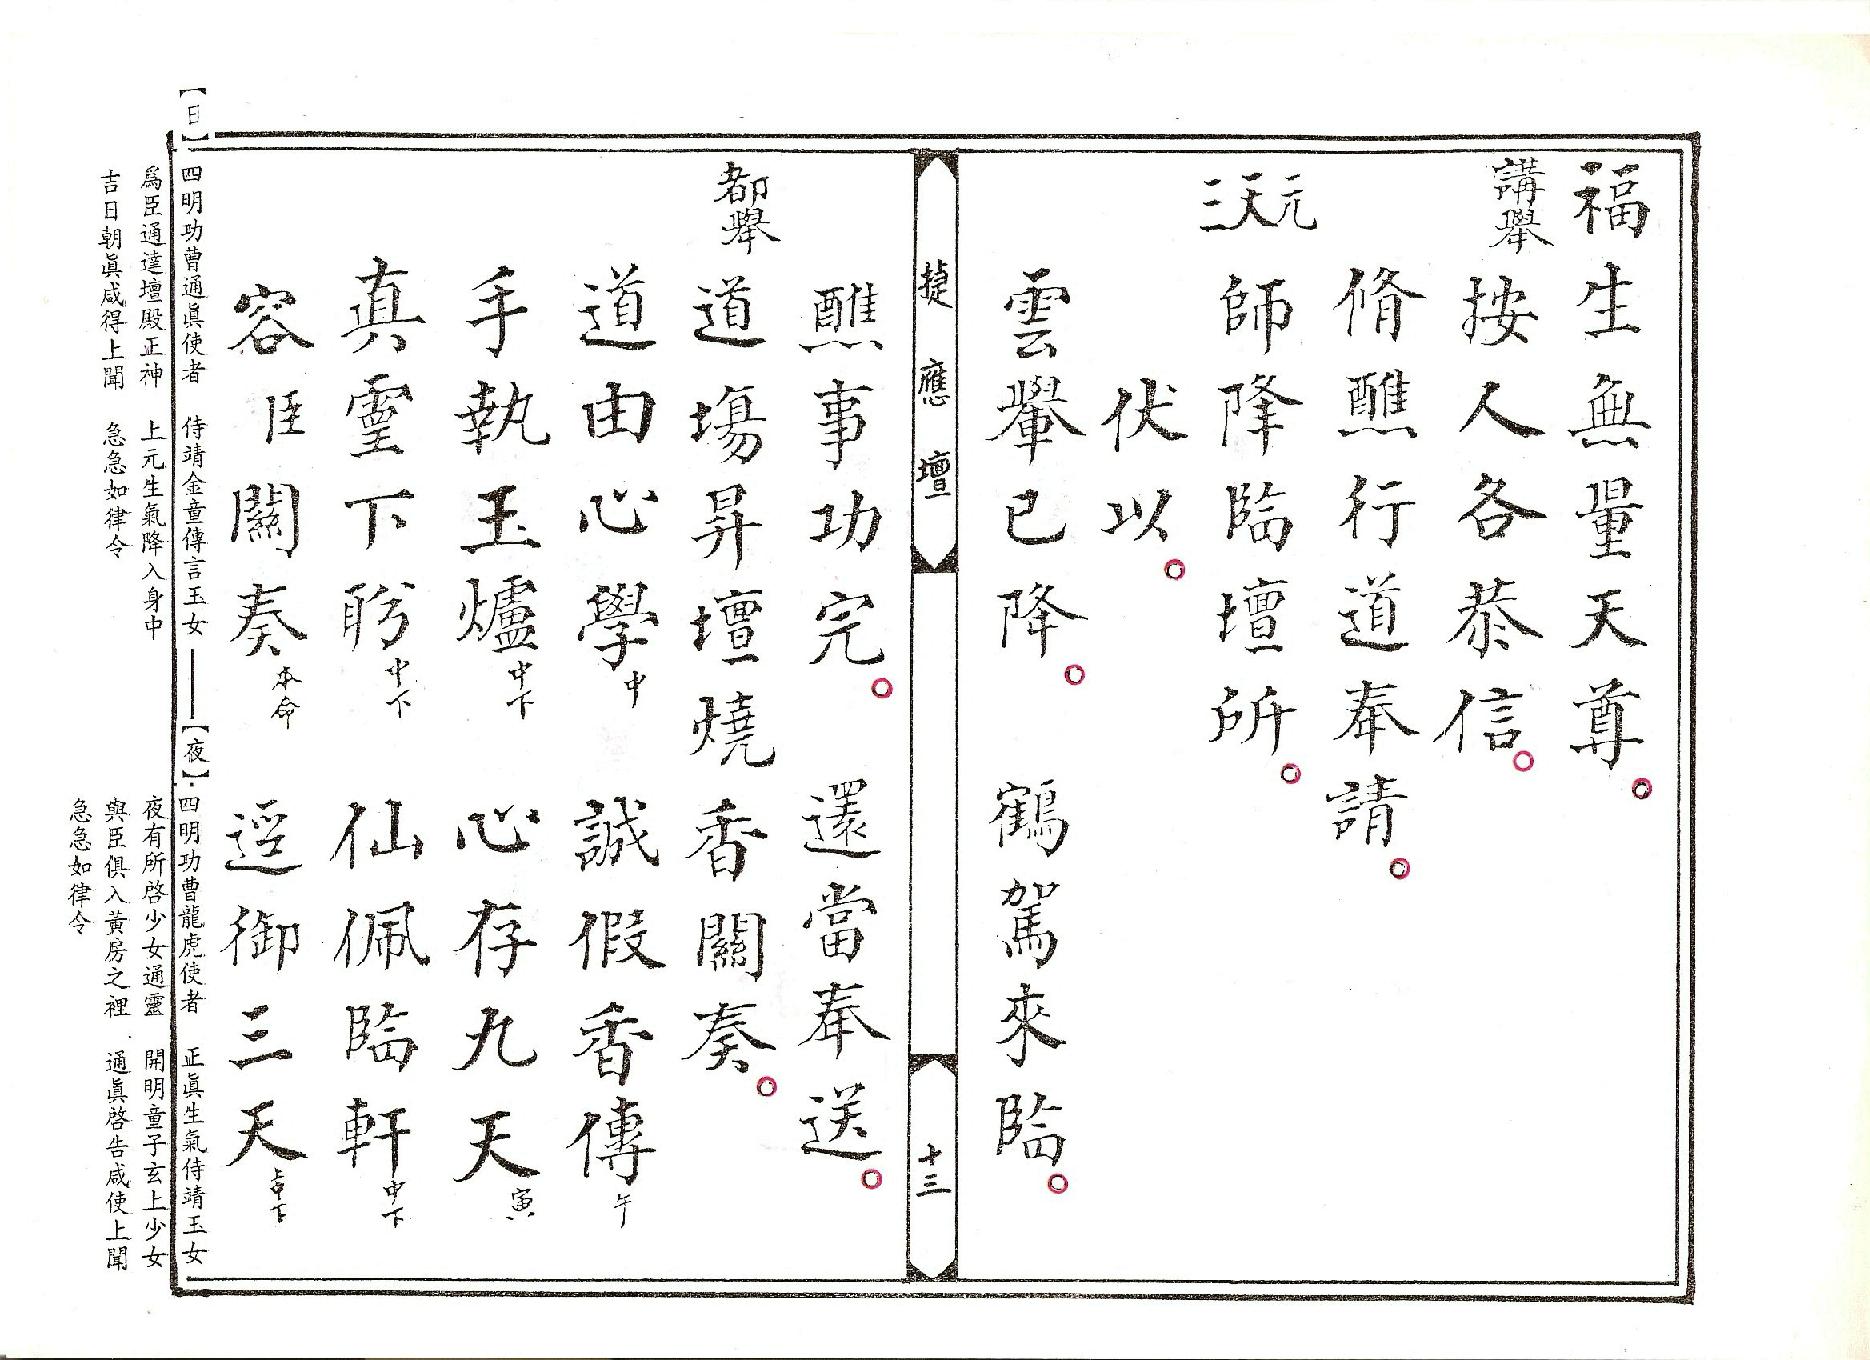 福生無量天尊
講舉
按人各恭信
脩醮行道奉請
元天三
師降臨壇所
伏以
雲轝已降 鶴駕來臨
捷應壇
十三
醮事功完 還當奉送
都舉
道場昇壇燒香關奏
道由心學中 誠假香傳午
手執玉爐中下 心存九天寅
真靈下盻中下 仙佩臨軒中下
容臣關奏本命 逕御三天上下
【日】四明功曹通眞使者 侍靖金童傳言玉女
爲臣通達壇殿正神 上元生氣降入身中
吉日朝眞咸得上聞 急急如律令
【夜】四明功曹龍虎使者 正眞生氣侍靖玉女
夜有所啓少女通靈 開明童子玄上少女
與臣俱入黃房之裡 通眞啓告咸使上聞
急急如律令